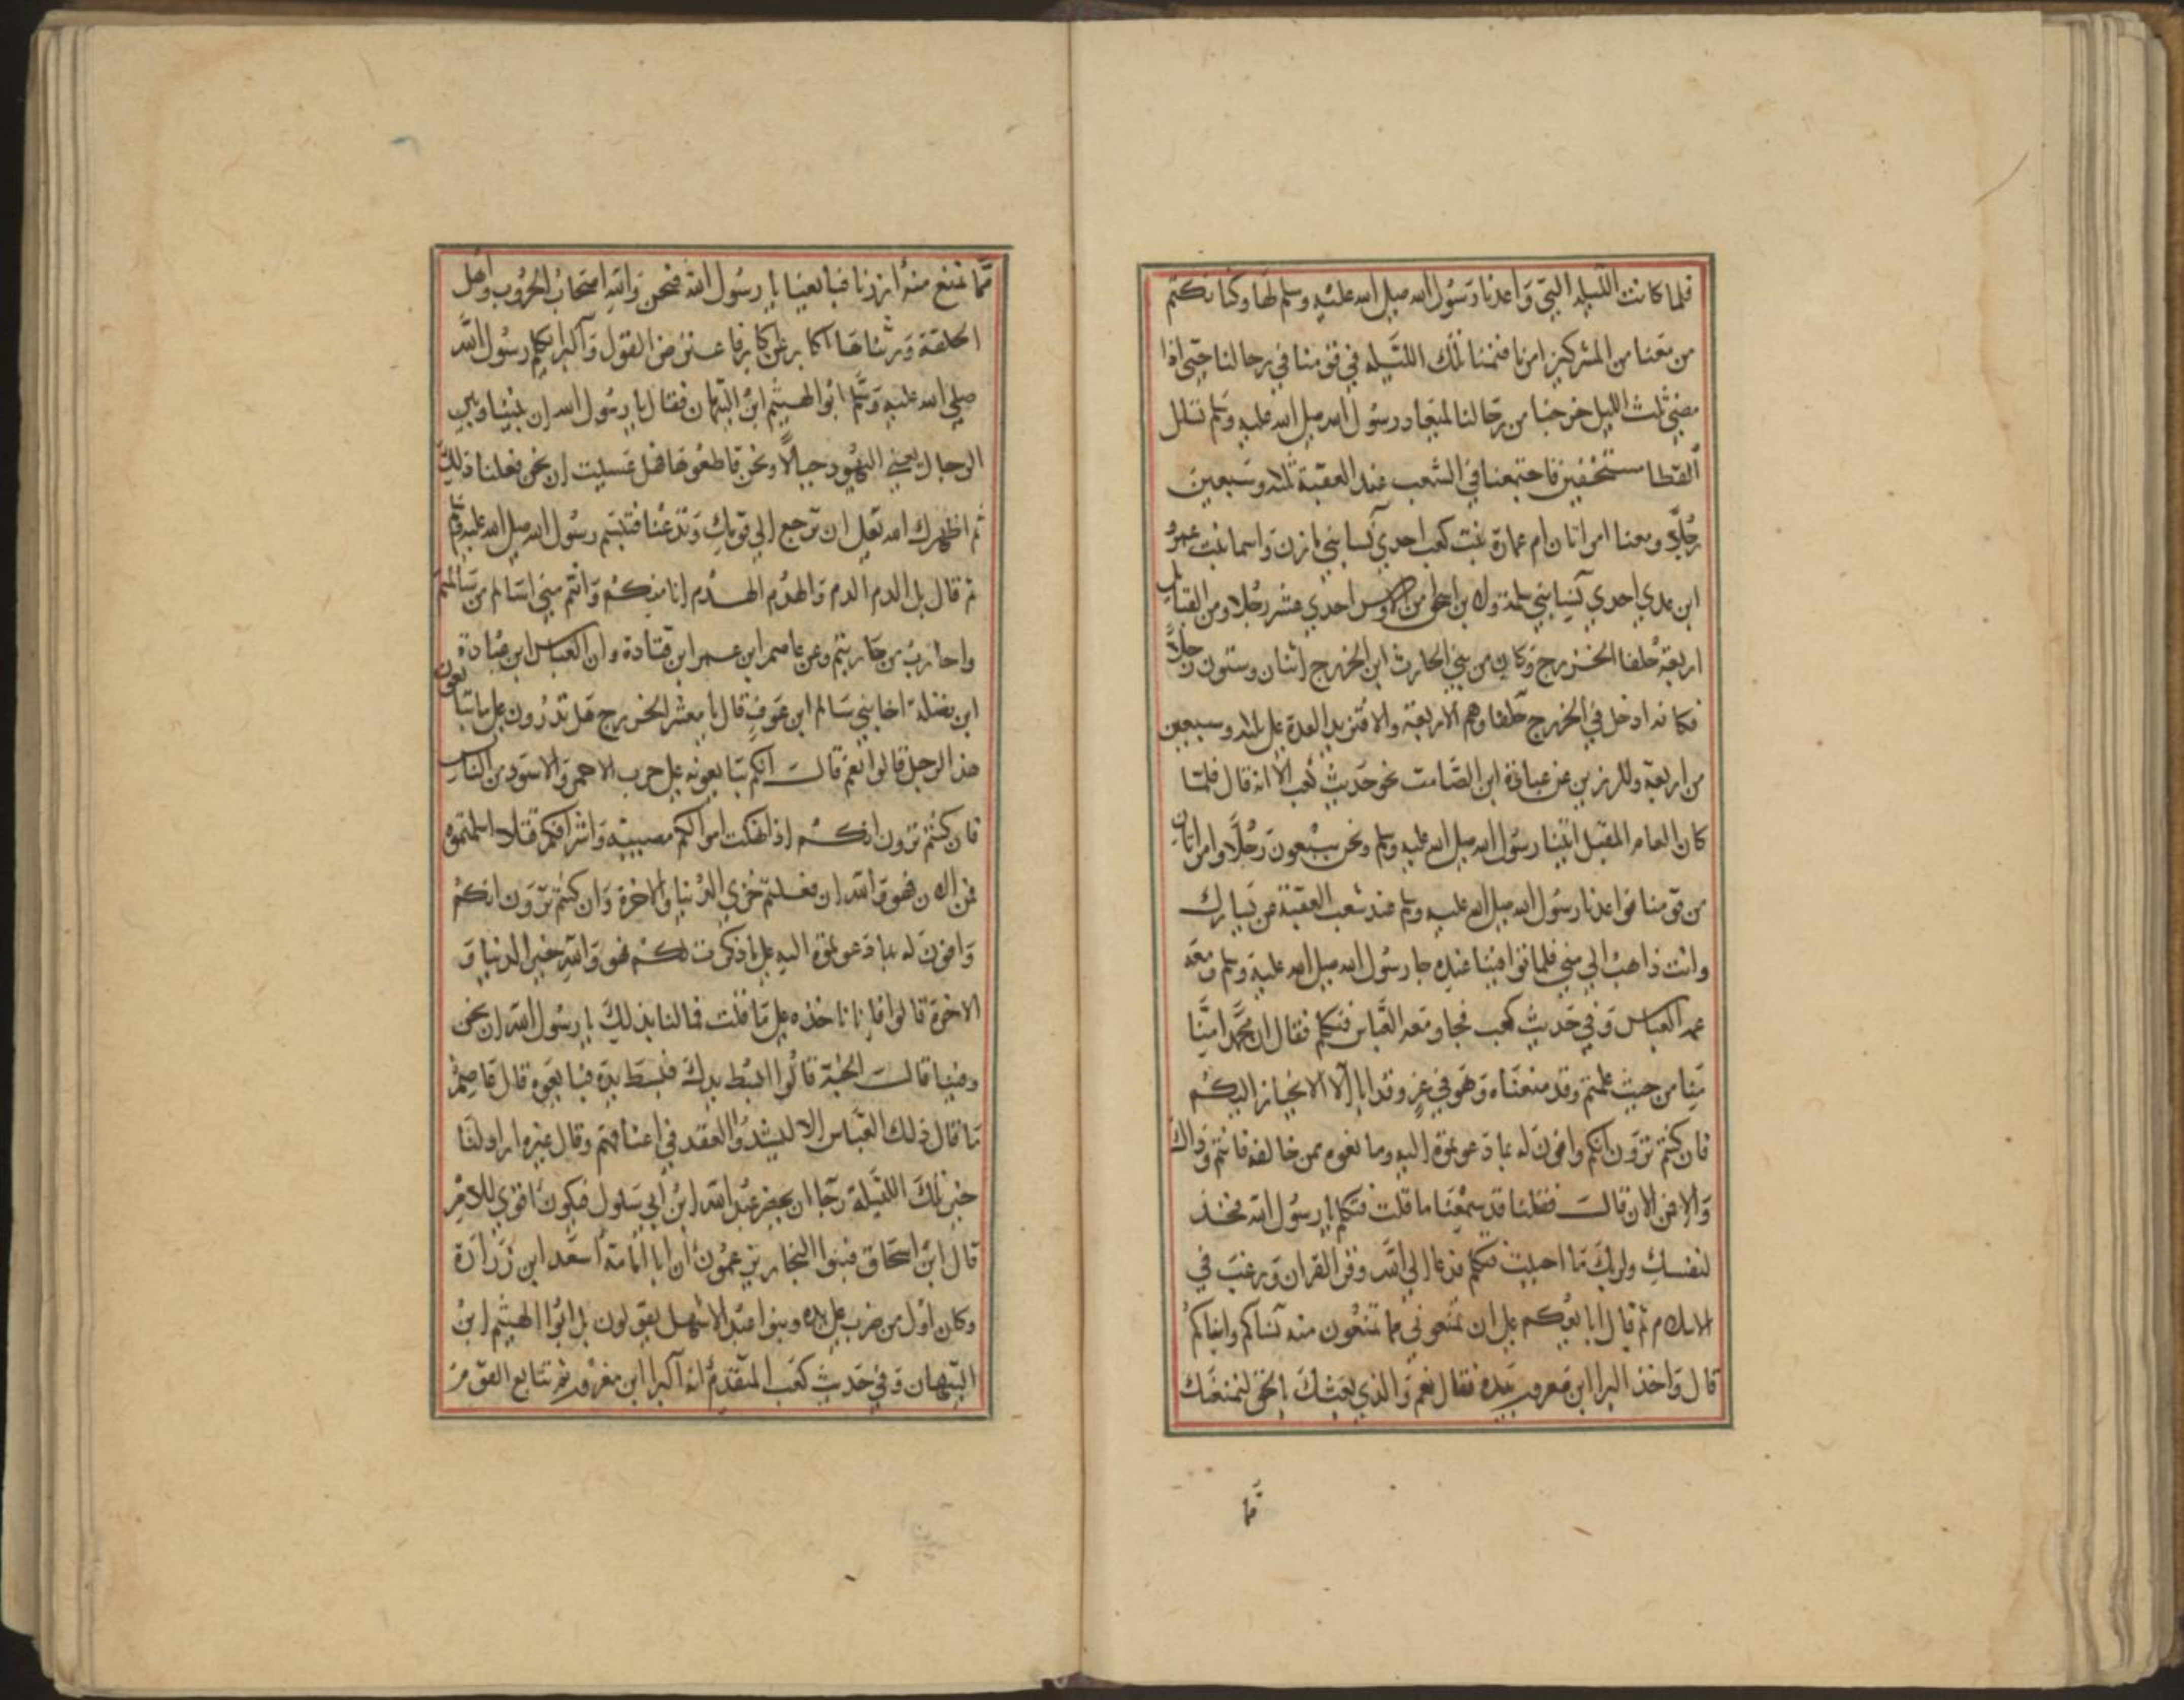 فلما كانت الليله التي واعدنا رسول الله صلى الله عليه وسلم لها وكنا نكتم
من معنا من المشركين امرنا فنمنا تلك الليله في قومنا في رحالنا حتى اذا
مضى ثلث الليل خرجنا من رحالنا لميعاد رسول الله صلى الله عليه وسلم تسلل
القطا مستخفين فاجتمعنا في الشعب عند العقبة ثلثه وسبعين
رجلا ومعنا امراتان ام عمارة بنت كعب احدي نسا بني مازن واسما بنت عمرو
ابن عدي احدي نسا بني سلمة من الاوس احدي عشر رجلا ومن القبايل
اربعة حلفا الخزرج وكان من بني الحارث ابن الخزرج اثنان وستون رجلا
فكانه ادخل في الخزرج حلفا وهم الاربعة والا فتزيد العدة على ثلثه وسبعين
من اربعة ولل رزين عن عبادة ابن الصامت نحو حديث كعب الا انه قال فلما
كان العام المقبل اتينا رسول الله صلى الله عليه وسلم ونحن سبعون رجلا وامراتان
من قومنا فواعدنا رسول الله صلى الله عليه وسلم عند شعب العقبة عن يسارك
وانت ذاهب الي مني فلما توافينا عنده جا رسول الله صلى الله عليه وسلم ومعه
عمه العباس وفي حديث كعب فجا ومعه العباس فتكلم فقال ان محمدا منا
منا من حيث علمتم وقد منعناه وهو في عز وقد ابا الا الانحياز اليكم
فان كنتم ترون انكم وافون له بما دعوتموه اليه ومانعوه ممن خالفه فانتم وذاك
والا فمن الان قالت فقلنا قد سمعنا ما قلت فتكلم يا رسول الله فخذ
لنفسك ولربك ما احببت فتكلم فدعا الي الله وقرا القران ورغب في
الاسلام ثم قال ابايعكم على ان تمنعوني مما تمنعون منه نساكم وابناكم
قال واخذ البرا ابن معرور بيده فقال نعم والذي بعثك بالحق لنمنعنك
مما
مما نمنع منه ازرنا فبايعنا يا رسول الله فنحن والله اصحاب الحروب واهل
الحلقة ورثناها اكابر عن كابر فاعترض القول والبرا يكلم رسول الله
صلى الله عليه وسلم ابو الهيثم ابن التيهان فقال يا رسول الله ان بيننا وبين
الرجال يعني اليهود حبالا ونحن قاطعوها فهل عسيت ان نحن فعلنا ذلك
ثم اظهرك الله تعلى ان ترجع الي قومك وتدعنا فتبسم رسول الله صلى الله عليه وسلم
ثم قال بل الدم الدم والهدم الهدم انا منكم وانتم مني اسالم من سالمتم
واحارب من حاربتم وعن عاصم ابن عمر ابن قتادة وان العباس ابن عبادة
ابن نضلة اخا بني سالم ابن عوف قال يا معشر الخزرج هل تدرون على ما تبايعون
هذا الرجل قالوا نعم قال انكم تبايعونه على حرب الاحمر والاسود من الناس
فان كنتم ترون انكم اذا نهكت اموالكم مصيبة واشرافكم قتلا اسلمتموه
فمن الان فهو والله ان فعلتم خزي الدنيا والاخرة وان كنتم ترون انكم
وافون له بما دعوتموه اليه على ما ذكرت لكم فهو والله خير الدنيا و
الاخرة قالوا فانا ناخذه على ما قلت فما لنا بذلك يا رسول الله ان نحن
وفينا قال الجنة قالوا ابسط يدك فبسط يده فبايعوه قال عاصم
ما قال ذلك العباس الا ليشد العقد في اعناقهم وقال غيره اراد لنا
خبر تلك الليلة رجا ان يحضر عبد الله ابن ابي سلول فيكون اقوي للامر
قال ابن اسحاق فبنوا النجار يزعمون ان ابا امامة اسعد ابن زرارة
وكان اول من ضرب على يده وبنوا عبد الاشهل يقولون بل ابوا الهيثم ابن
التيهان وفي حديث كعب المتقدم انه البرا ابن معرور ثم تتابع القوم